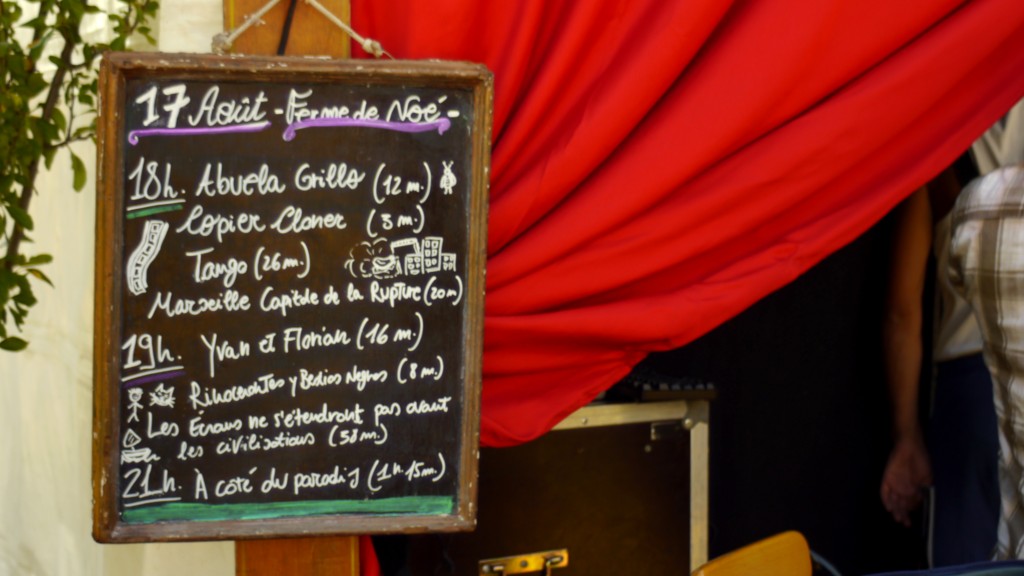 17 Août - Ferme de Noé -
18h. Abuela Grillo (12 m.)
Copier Cloner (3 m.)
Tango (26 m.)
Marseille Capitale de la Rupture (20 m)
19h. Yvan et Florian (16 m.)
y Negros (8 m.)
Les Écrans ne s'étendront pas avant
les civilisations
21h. À coté du paradis (1h.15m.)